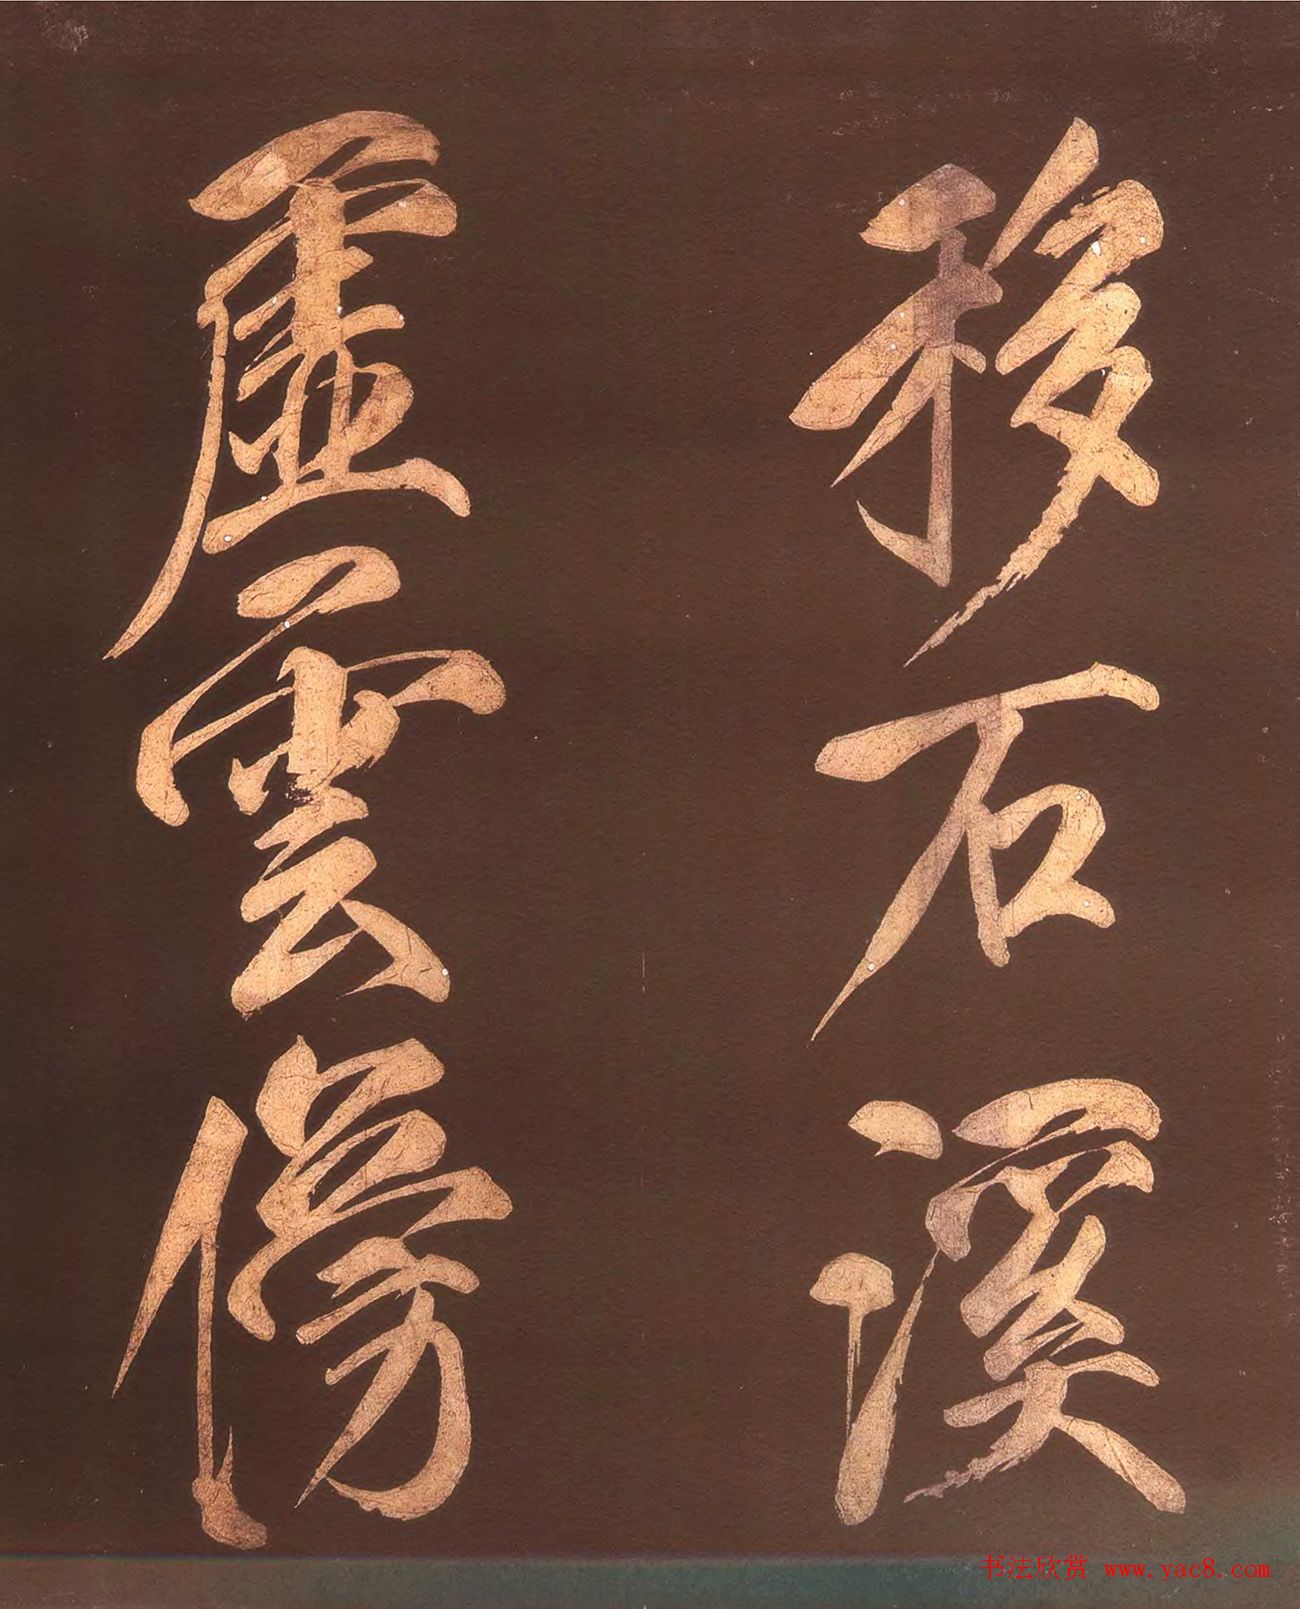 移石溪
虛雲傍
书法欣赏 www.yac8.com